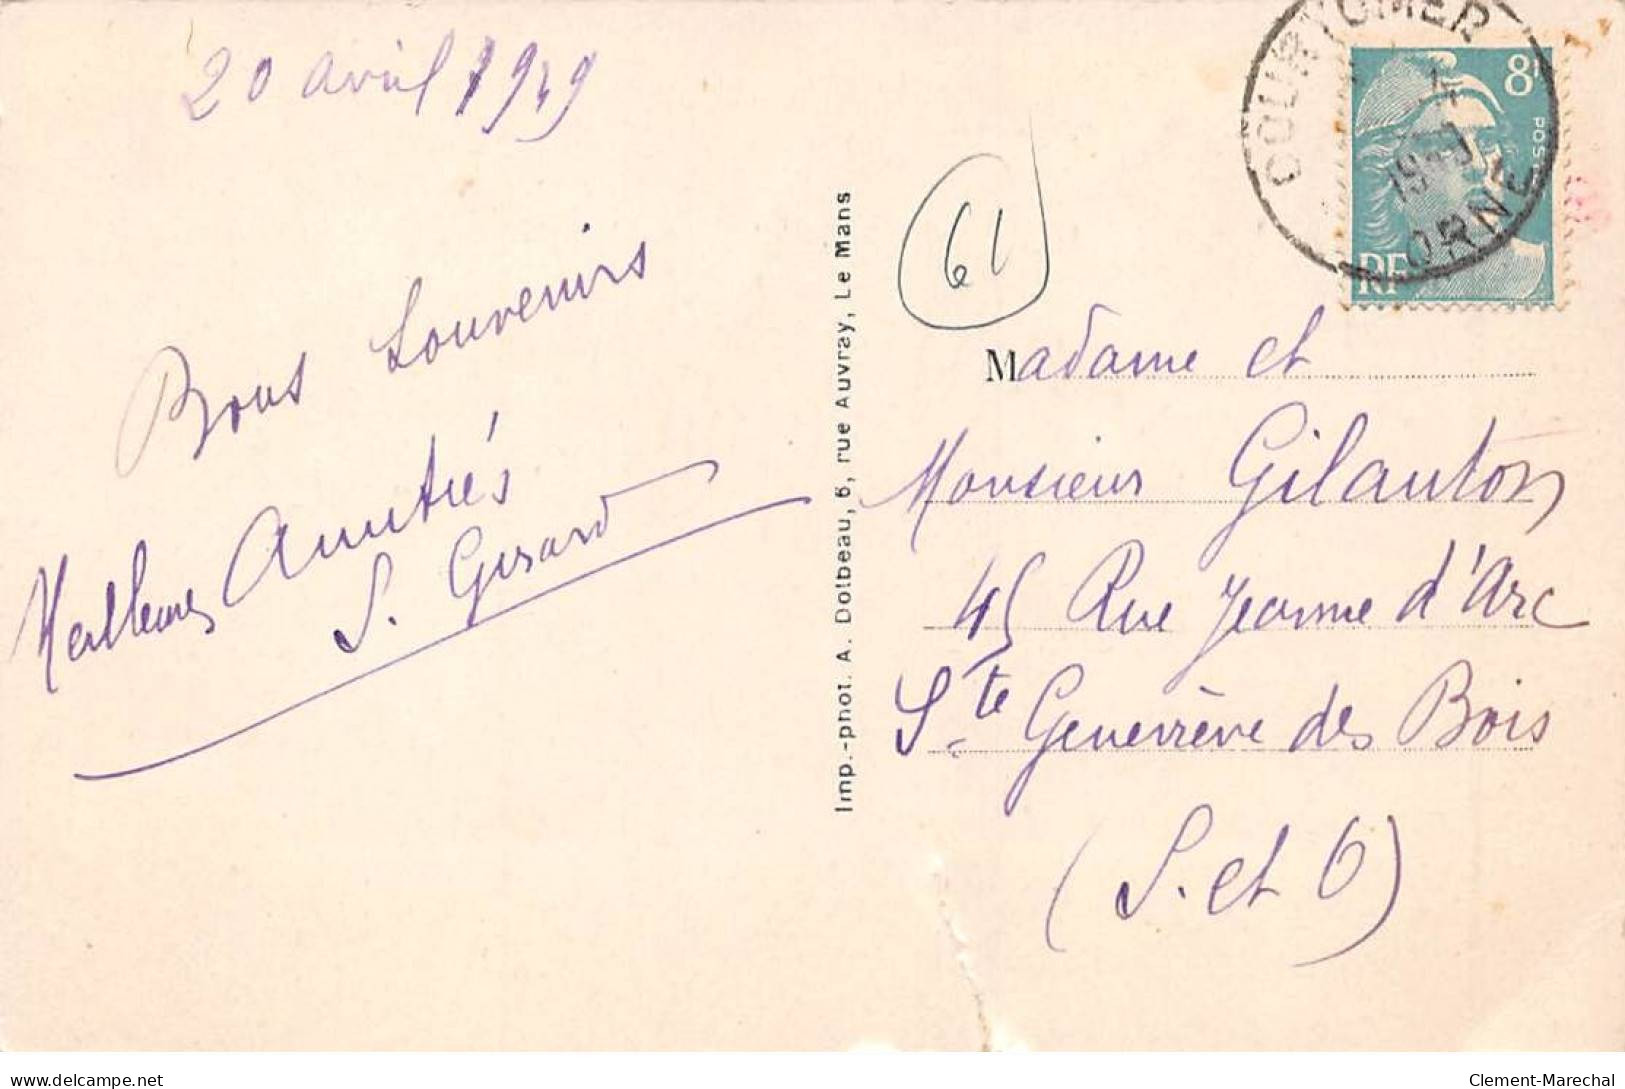 20 avril 1949
Bons Souvenirs
Meilleures Amitiés
S. Gérard
Imp.-phot. A. Dolbeau, 6, rue Auvray, Le Mans
61
COURTOMER
ORNE
8F
POST
RF
Madame et
Monsieur Gilanton
45 Rue Jeanne d'Arc
Ste Geneviève des Bois
(S. et O)
www.delcampe.net
Clement-Marechal